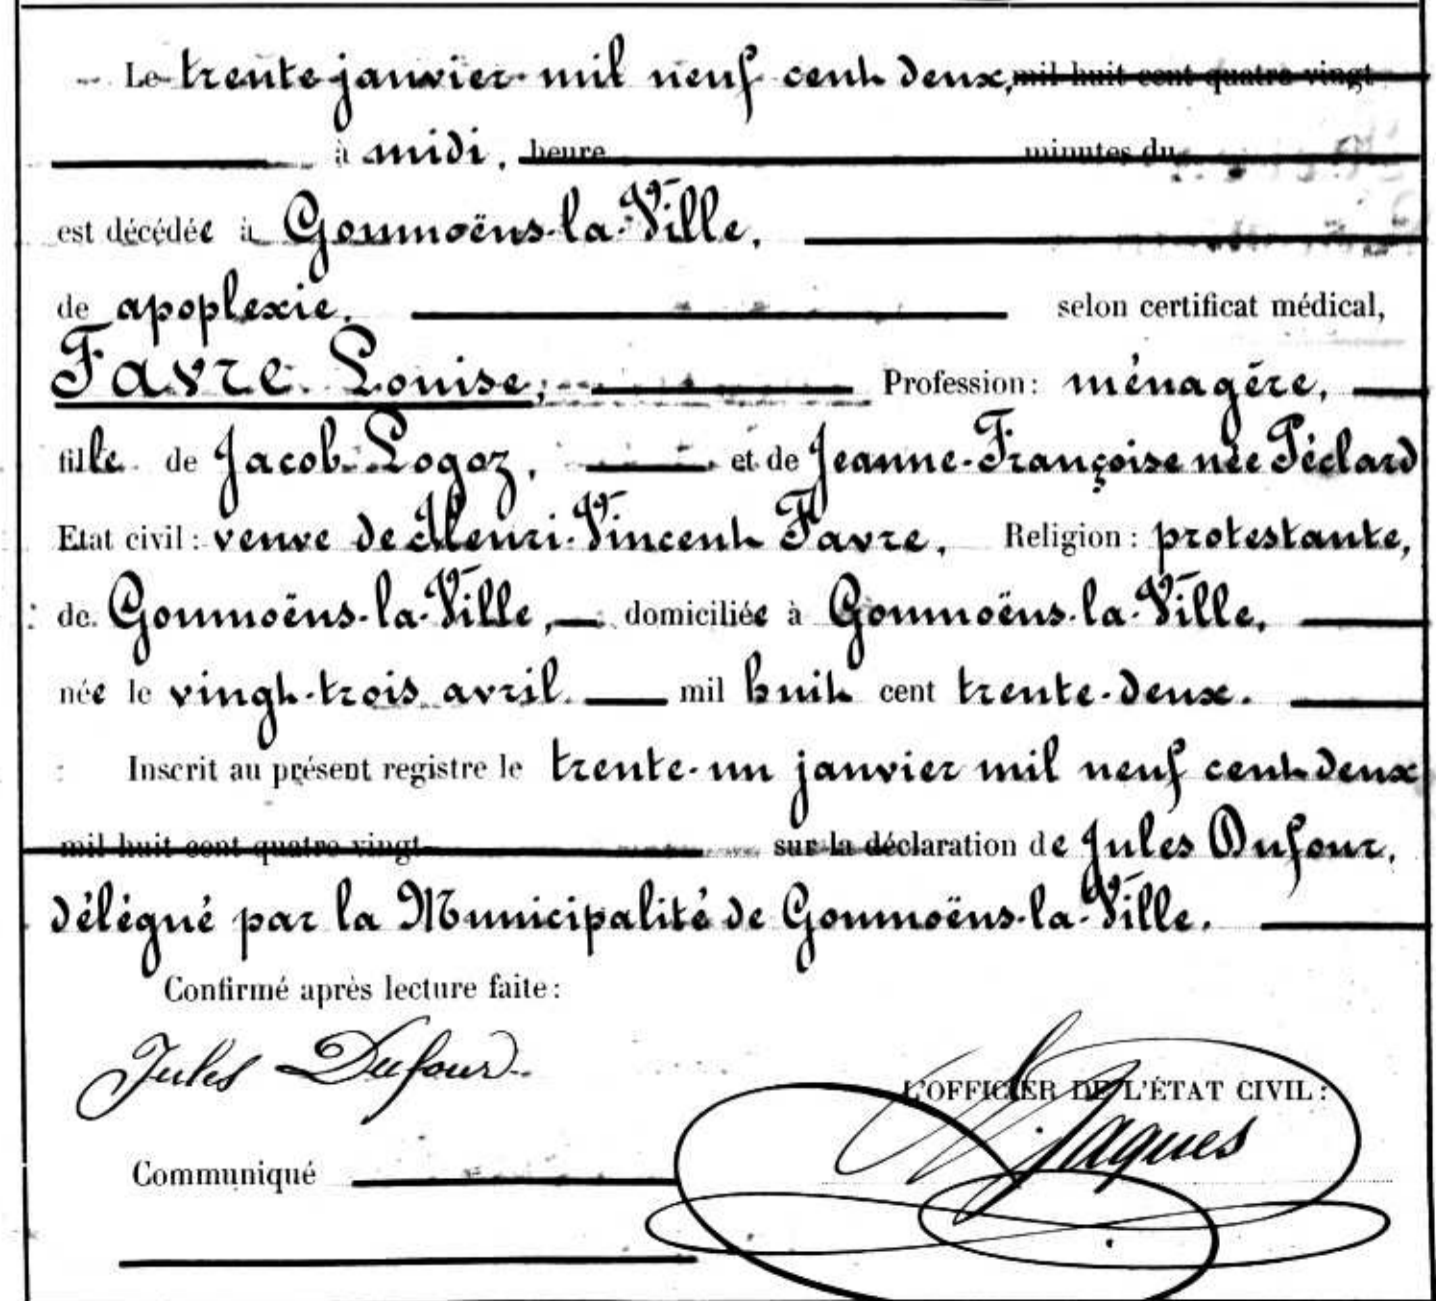 Le trente janvier mil neuf cent deux, mil huit cent quatre vingt
à midi, heure minutes du
est décédée à Goumoëns-la-Ville,
de apoplexie, selon certificat médical,
Favre Louise, Profession: ménagère,
fille de Jacob Logoz, et de Jeanne-Françoise née Péclard
Etat civil: veuve de Henri-Vincent Favre, Religion: protestante,
de Goumoëns-la-Ville, domiciliée à Goumoëns-la-Ville,
née le vingt-trois avril mil huit cent trente-deux.
Inscrit au présent registre le trente-un janvier mil neuf cent deux
mil huit cent quatre vingt sur la déclaration de Jules Dufour,
délégué par la Municipalité de Goumoëns-la-Ville.
Confirmé après lecture faite:
Jules Dufour
L'OFFICIER DE L'ÉTAT CIVIL:
Jaques
Communiqué